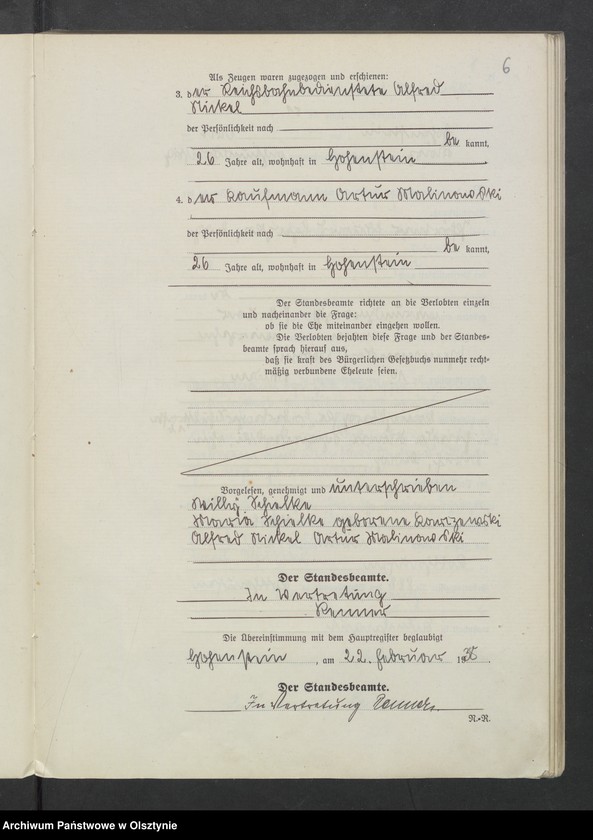 6
Als Zeugen waren zugezogen und erschienen:
3. der Reichsbahnbedienstete Alfred
Nickel
der Persönlichkeit nach
be kannt,
26 Jahre alt, wohnhaft in Hohenstein.
4. der Kaufmann Artur Malinowski
der Persönlichkeit nach
be kannt,
26 Jahre alt, wohnhaft in Hohenstein
Der Standesbeamte richtete an die Verlobten einzeln
und nacheinander die Frage:
ob sie die Ehe miteinander eingehen wollen.
Die Verlobten bejahten diese Frage und der Standes-
beamte sprach hierauf aus,
daß sie kraft des Bürgerlichen Gesetzbuchs nunmehr recht-
mäßig verbundene Eheleute seien.
Vorgelesen, genehmigt und unterschrieben
Willy Schielke
Maria Schielke geborene
Alfred Nickel Artur Malinowski
Der Standesbeamte.
In Vertretung
Renner
Die Übereinstimmung mit dem Hauptregister beglaubigt
Hohenstein, am 22. Februar 19
Der Standesbeamte.
In Vertretung Renner.
R.-R.
Archiwum Państwowe w Olsztynie